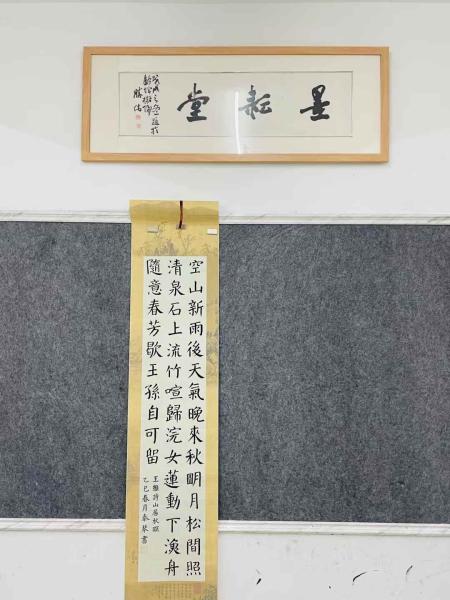 墨耘堂
空山新雨後天氣晚來秋眀月松間照
清泉石上流竹喧歸浣女蓮動下漁舟
隨意春芳歇王孫自可留
王維詩山居秋暝
乙巳春月